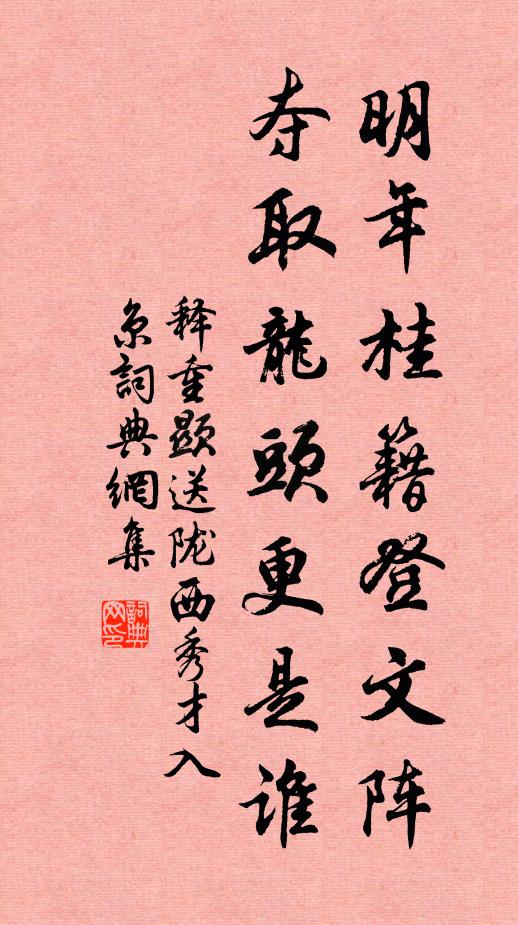 明年桂籍登文阵
夺取龍頭更是谁
释重顕送陇西秀才入
京詞典網集
詞典網印